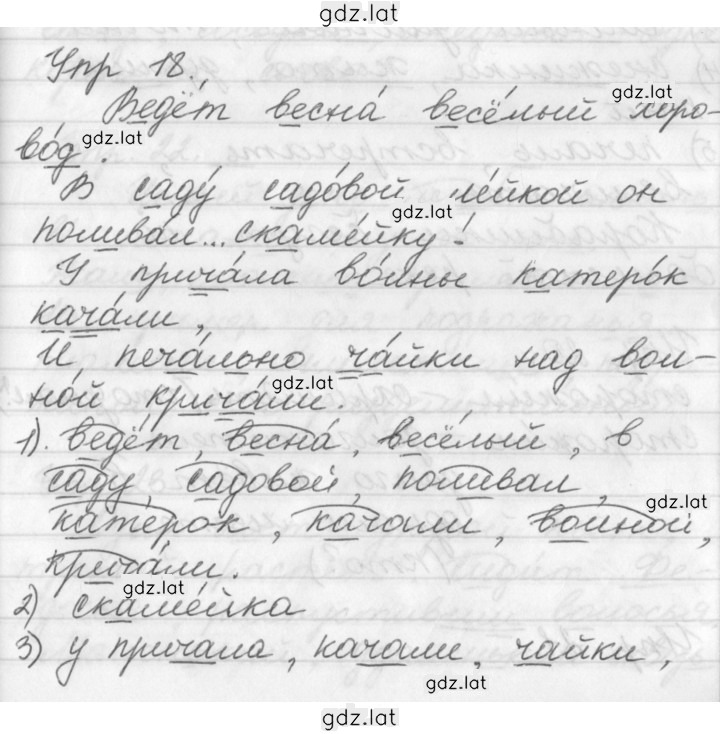 gdz.lat
Упр 18.
Ведёт весна́ весёлый хоро-
gdz.lat
во́д.
gdz.lat
В саду́ садо́вой ле́йкой он
gdz.lat
поливал... скаме́йку!
У прича́ла во́лны катеро́к
кача́ли,
И печа́льно ча́йки над вол-
gdz.lat
но́й крича́ли.
1). ведёт, весна́, весёлый, в
саду, садовой, поливал,
gdz.lat
катерок, качали, волной,
крича́ли.
gdz.lat
2) скаме́йка
3) у причала, качали, чайки,
gdz.lat
gdz.lat